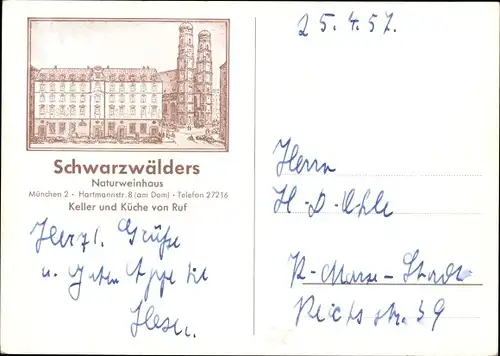 25.4.57.
Schwarzwälders
Naturweinhaus
München 2 - Hartmannstr. 8 (am Dom) - Telefon 27216
Keller und Küche von Ruf
Herzl. Grüße
u. guten Appetit
Herrn
H-D-Ehle
Reichsstr. 59